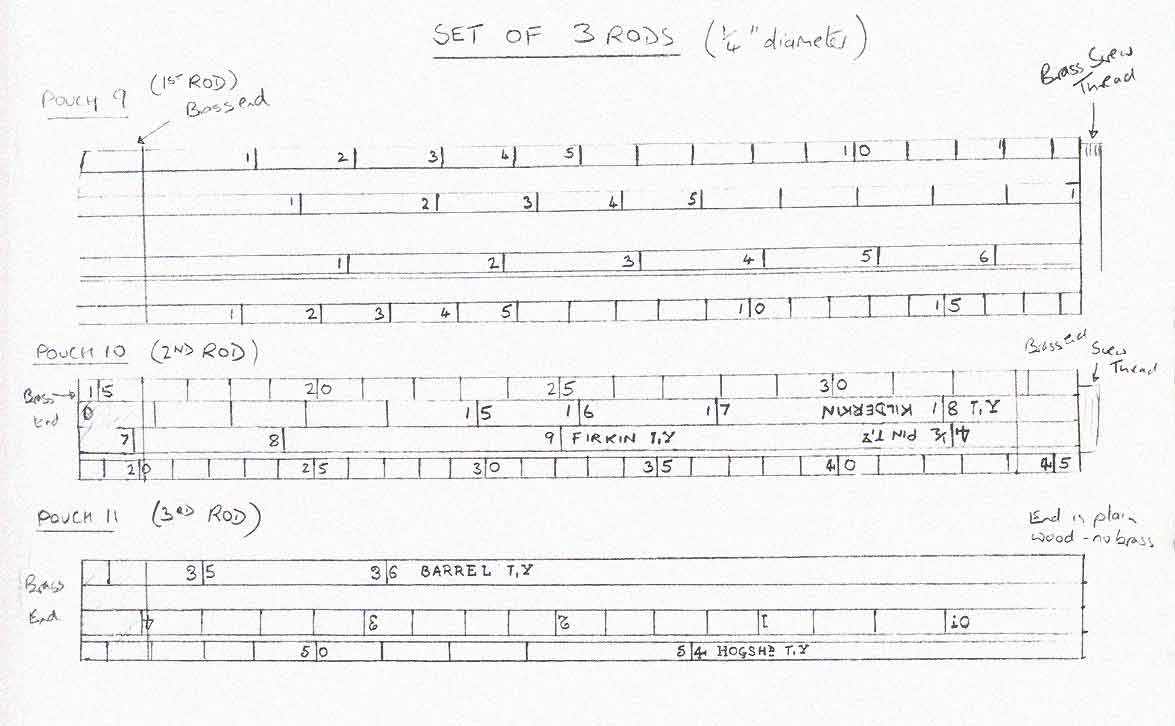 SET OF 3 RODS (¼" diameter)
Brass Screw Thread
POUCH 9 (1ST ROD) Brass end
1 2 3 4 5 10
1 2 3 4 5
1 2 3 4 5 6
1 2 3 4 5 10 15
POUCH 10 (2ND ROD)
Brass end Screw Thread
Brass End
15 20 25 30
0 15 16 17 KILDERKIN 18 T,Y
7 8 9 FIRKIN T,Y PIN T,Y 4½
20 25 30 35 40 45
POUCH 11 (3RD ROD)
End is plain
wood - no brass
Brass End
35 36 BARREL T,Y
4 3 2 1 10
50 54 HOGSHD T,Y